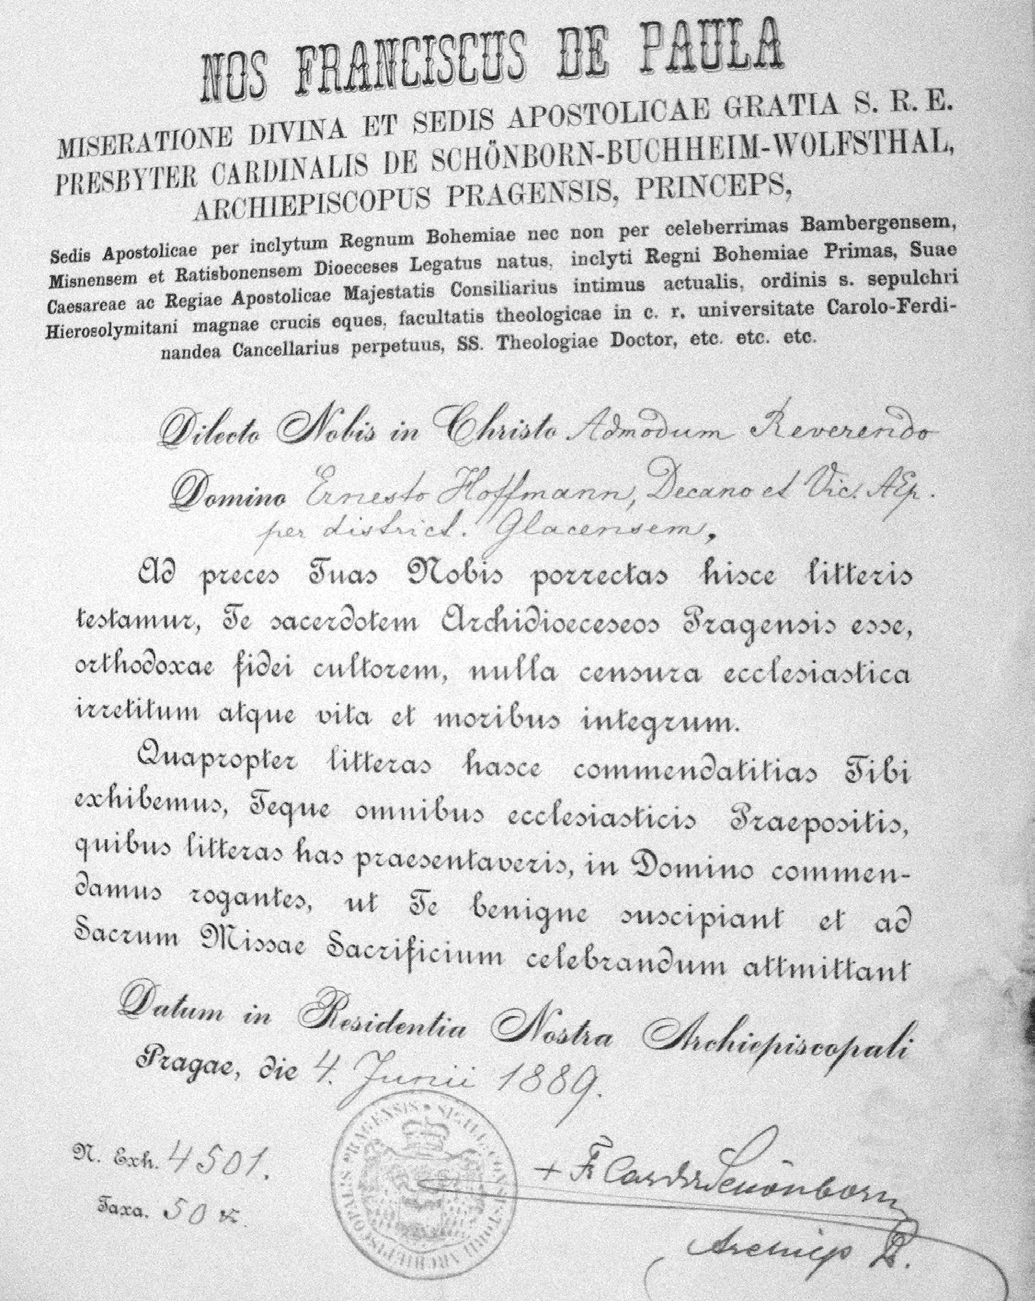 NOS FRANCISCUS DE PAULA
MISERATIONE DIVINA ET SEDIS APOSTOLICAE GRATIA S. R. E.
PRESBYTER CARDINALIS DE SCHÖNBORN-BUCHHEIM-WOLFSTHAL,
ARCHIEPISCOPUS PRAGENSIS, PRINCEPS,
Sedis Apostolicae per inclytum Regnum Bohemiae nec non per celeberrimas Bambergensem,
Misnensem et Ratisbonensem Dioeceses Legatus natus, inclyti Regni Bohemiae Primas, Suae
Caesareae ac Regiae Apostolicae Majestatis Consiliarius intimus actualis, ordinis s. sepulchri
Hierosolymitani magnae crucis eques, facultatis theologicae in c. r. universitate Carolo-Ferdi-
nandea Cancellarius perpetuus, SS. Theologiae Doctor, etc. etc. etc.
Dilecto Nobis in Christo Admodum Reverendo
Domino Ernesto Hoffmann, Decano et Vic. AEp.
per district. Glacensem,
Ad preces Tuas Nobis porrectas hisce litteris
testamur, Te sacerdotem Archidioeceseos Pragensis esse,
orthodoxae fidei cultorem, nulla censura ecclesiastica
irretitum atque vita et moribus integrum.
Quapropter litteras hasce commendatitias Tibi
exhibemus, Teque omnibus ecclesiasticis Praepositis,
quibus litteras has praesentaveris, in Domino commen-
damus rogantes, ut Te benigne suscipiant et ad
Sacrum Missae Sacrificium celebrandum attmittant
Datum in Residentia Nostra Archiepiscopali
Pragae, die 4. Junii 1889.
SIGILL. CONSISTORII ARCHIEPISCOPALIS PRAGENSIS
N. Exh. 4501.
Taxa. 50 k.
+ Fr Card Schönborn
Archiep P.